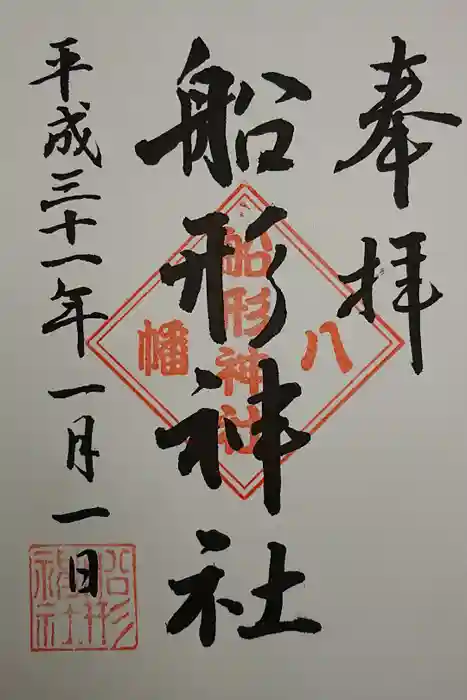 奉拝
八幡
船形神社
船形神社
平成三十一年一月一日
船形神社